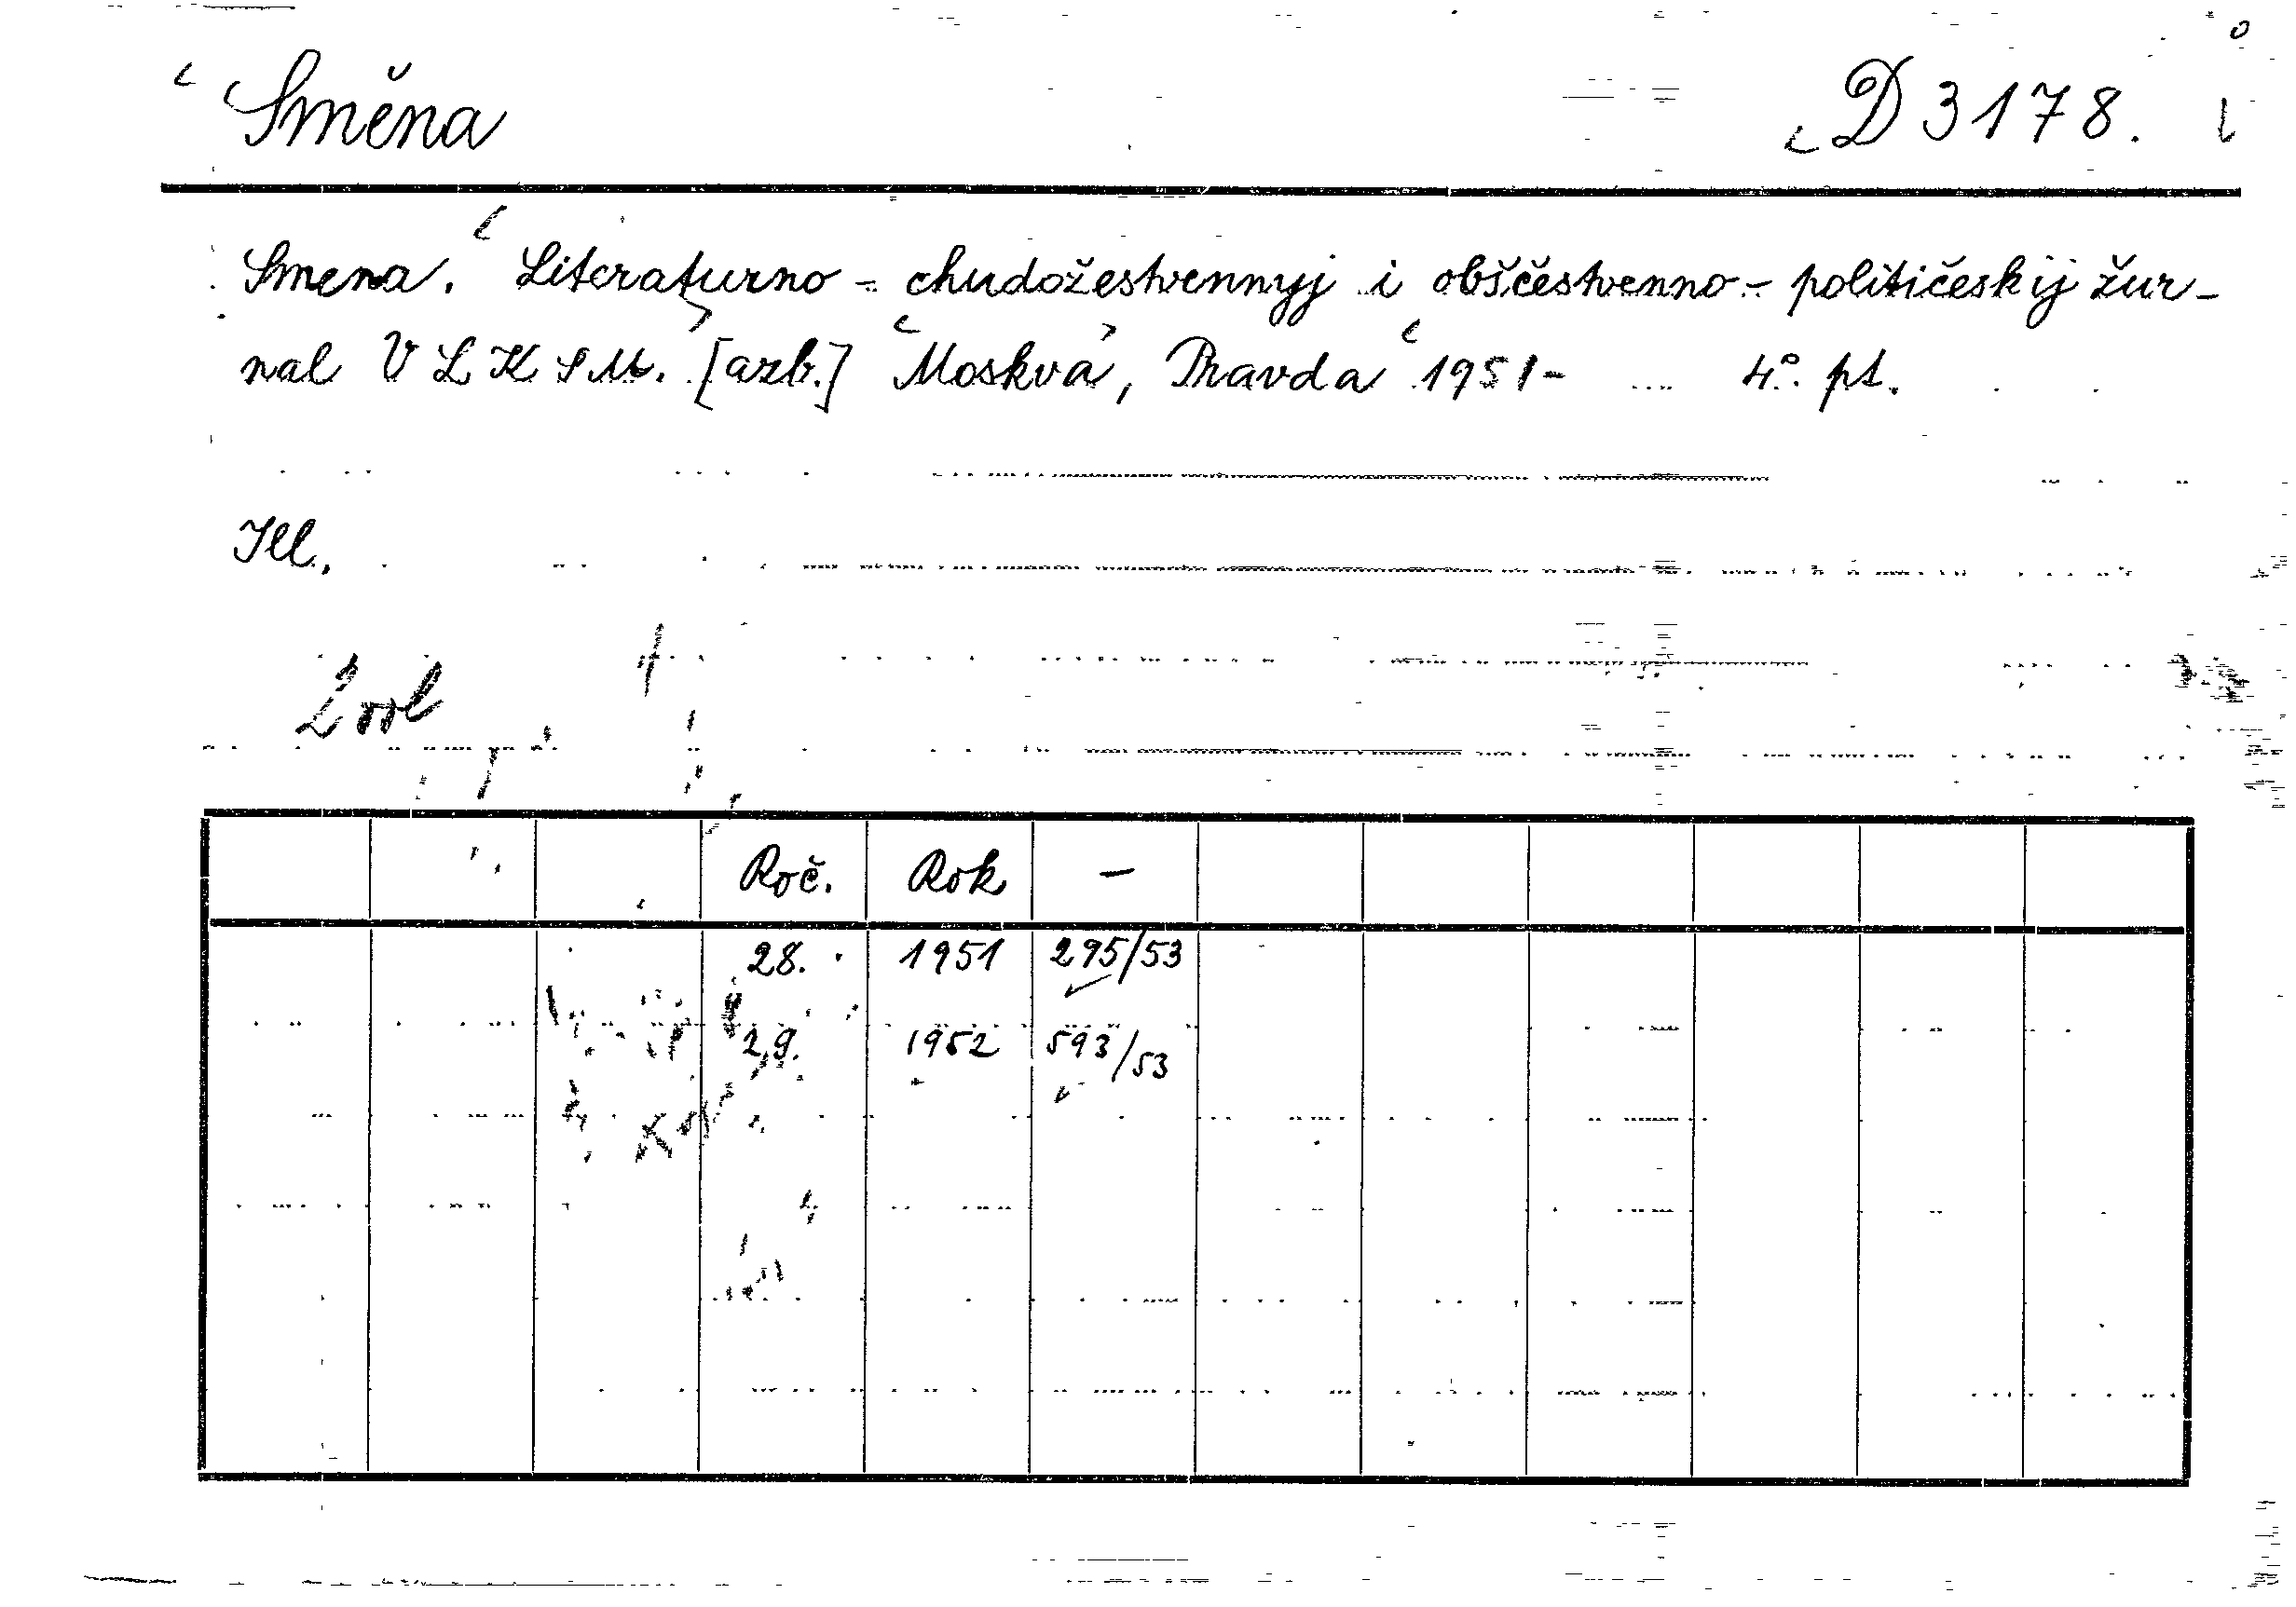 Směna D 3178.
Smena. Literaturno - chudožestvennyj i obščestvenno - političeskij žur-
nal VLKSM. [azb.] Moskva, Pravda 1951- 4°. pt.
Ill.
Roč. Rok —
28. 1951 295/53
29. 1952 593/53